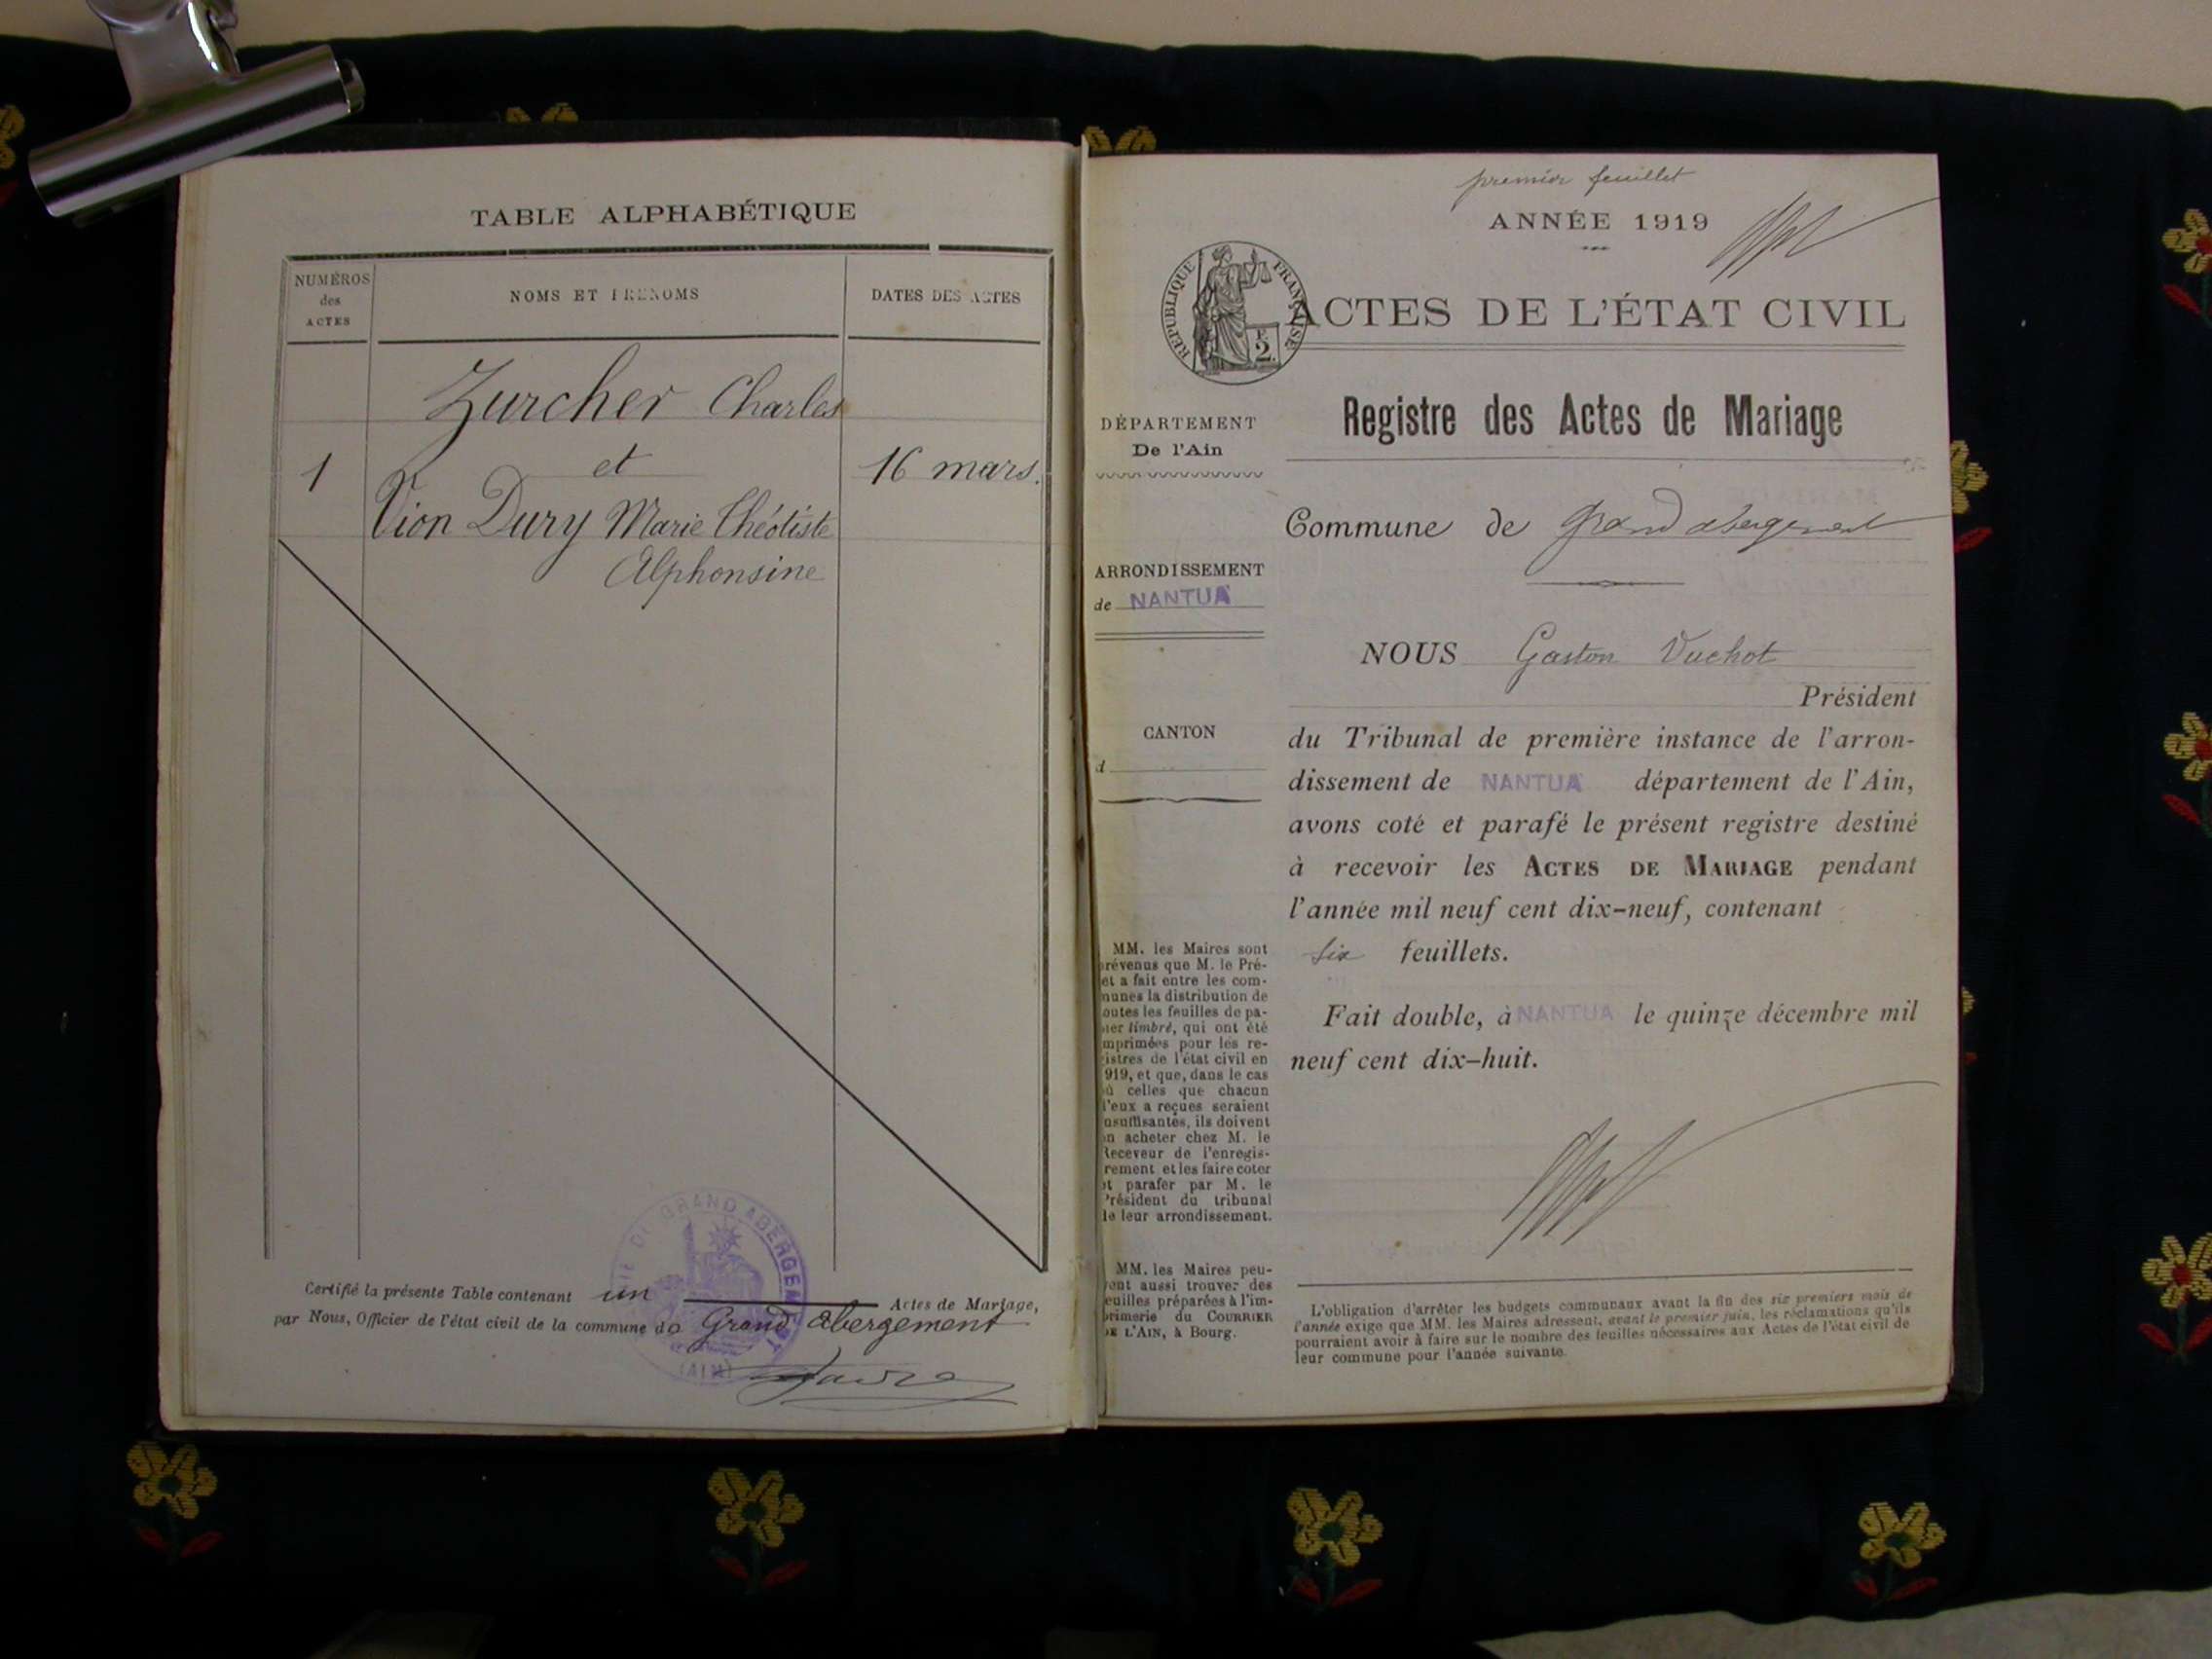 TABLE ALPHABÉTIQUE
NUMÉROS
des
ACTES
NOMS ET PRÉNOMS
DATES DES ACTES
Zurcher Charles
1
et
16 mars.
Vion Dury Marie Théotiste
Alphonsine
Certifié la présente Table contenant un Actes de Mariage,
par Nous, Officier de l'état civil de la commune de Grand Abergement
GRAND ABERGEMENT
(AIN)
premier feuillet
ANNÉE 1919
RÉPUBLIQUE FRANÇAISE
2
ACTES DE L'ÉTAT CIVIL
DÉPARTEMENT
De l'Ain
Registre des Actes de Mariage
Commune de Grand abergement
ARRONDISSEMENT
de NANTUA
NOUS Gaston Vuchot
Président
CANTON
d
du Tribunal de première instance de l'arron-
dissement de NANTUA département de l'Ain,
avons coté et parafé le présent registre destiné
à recevoir les ACTES DE MARIAGE pendant
l'année mil neuf cent dix-neuf, contenant
six feuillets.
Fait double, à NANTUA le quinze décembre mil
neuf cent dix-huit.
MM. les Maires sont
prévenus que M. le Pré-
et a fait entre les com-
munes la distribution de
outes les feuilles de pa-
ier timbré, qui ont été
mprimées pour les re-
istres de l'état civil en
919, et que, dans le cas
ù celles que chacun
d'eux a reçues seraient
nsuffisantes, ils doivent
n acheter chez M. le
Receveur de l'enregis-
rement et les faire coter
et parafer par M. le
Président du tribunal
de leur arrondissement.
MM. les Maires peu-
vent aussi trouver des
euilles préparées à l'im-
primerie du COURRIER
DE L'AIN, à Bourg.
L'obligation d'arrêter les budgets communaux avant la fin des six premiers mois de
l'année exige que MM. les Maires adressent, avant le premier juin, les réclamations qu'ils
pourraient avoir à faire sur le nombre des feuilles nécessaires aux Actes de l'état civil de
leur commune pour l'année suivante.